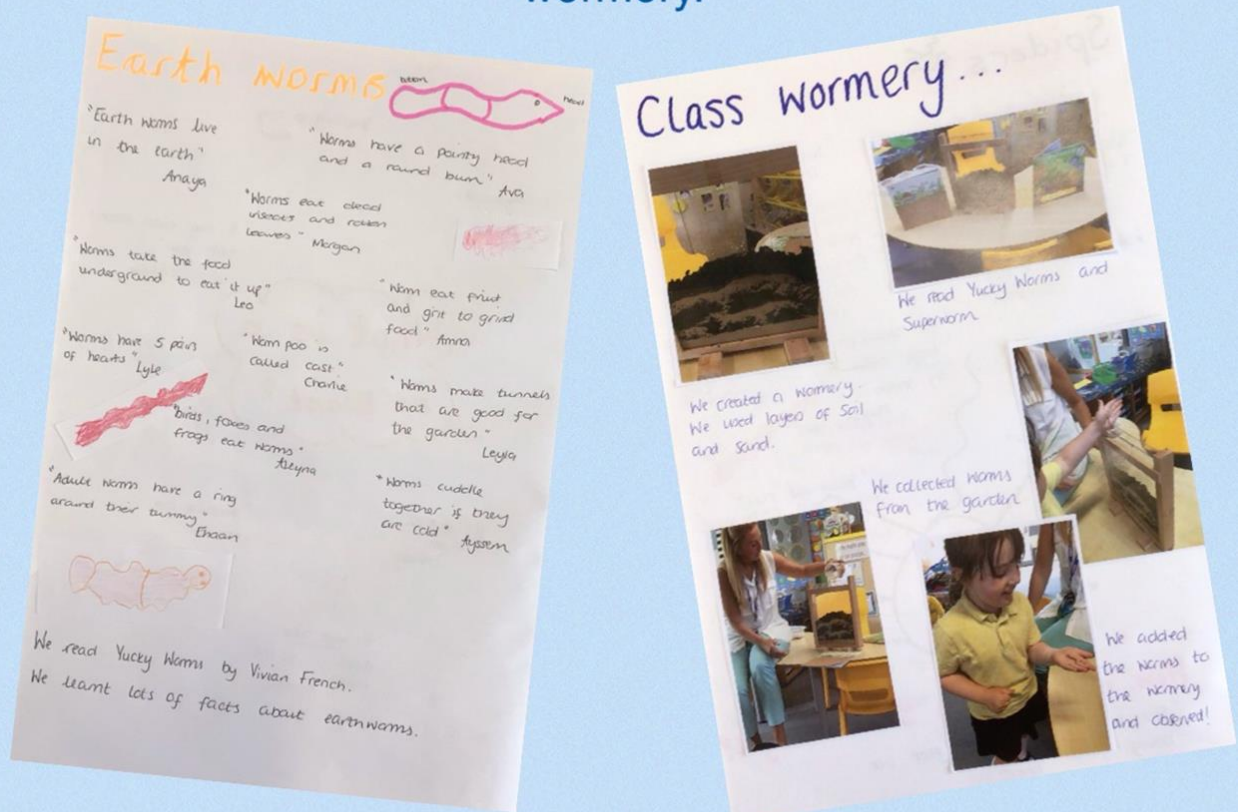 wormery.
Earth worms
bum
head
"Earth worms live
in the earth"
Anaya
"Worms have a pointy head
and a round bum"
Ava
"Worms eat dead
insects and rotten
leaves" Morgan
"Worms take the food
underground to eat it up"
Leo
"Worm eat fruit
and grit to grind
food" Amna
"Worms have 5 pairs
of hearts" Lyle
"Worm poo is
called cast"
Charlie
"Worms make tunnels
that are good for
the garden"
Leyla
"birds, foxes and
frogs eat worms"
Aleyna
"Adult worms have a ring
around their tummy"
"Worms cuddle
together if they
are cold" Ayssem
We read Yucky Worms by Vivian French.
We learnt lots of facts about earthworms.
Class wormery...
We read Yucky Worms and
Superworm
We created a wormery.
We used layers of soil
and sand.
We collected worms
from the garden
We added
the worms to
the wormery
and observed!